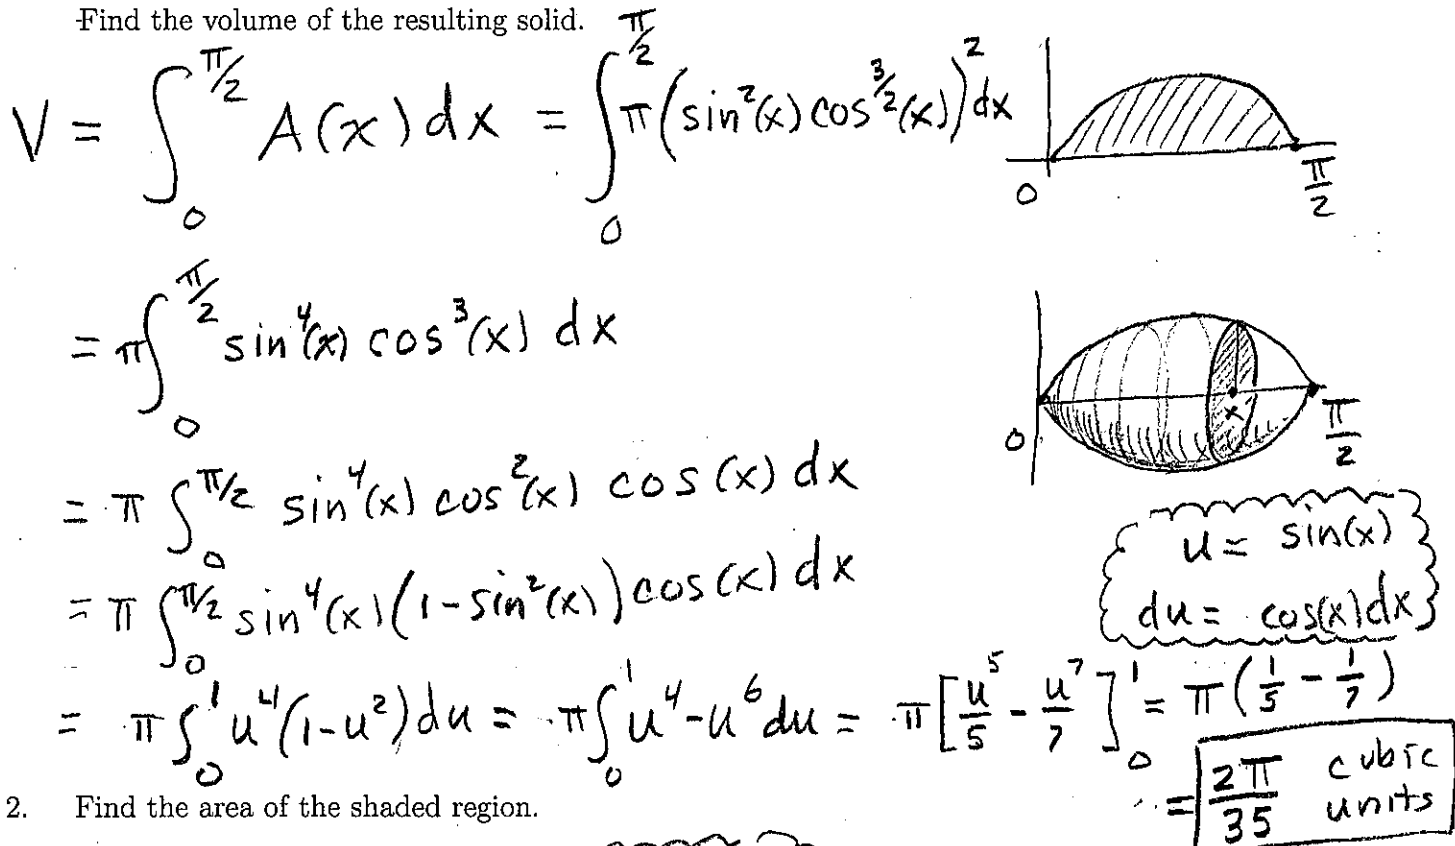 Find the volume of the resulting solid.
V = ∫₀^{π/2} A(x) dx = ∫₀^{π/2} π(sin²(x) cos^{3/2}(x))² dx
0 π/2
= π∫₀^{π/2} sin⁴(x) cos³(x) dx
0 x π/2
= π ∫₀^{π/2} sin⁴(x) cos²(x) cos(x) dx
u = sin(x)
= π ∫₀^{π/2} sin⁴(x)(1-sin²(x)) cos(x) dx
du = cos(x)dx
= π∫₀¹ u⁴(1-u²)du = π∫₀¹ u⁴-u⁶ du = π[u⁵/5 - u⁷/7]₀¹ = π(1/5 - 1/7)
= 2π/35 cubic units
2. Find the area of the shaded region.